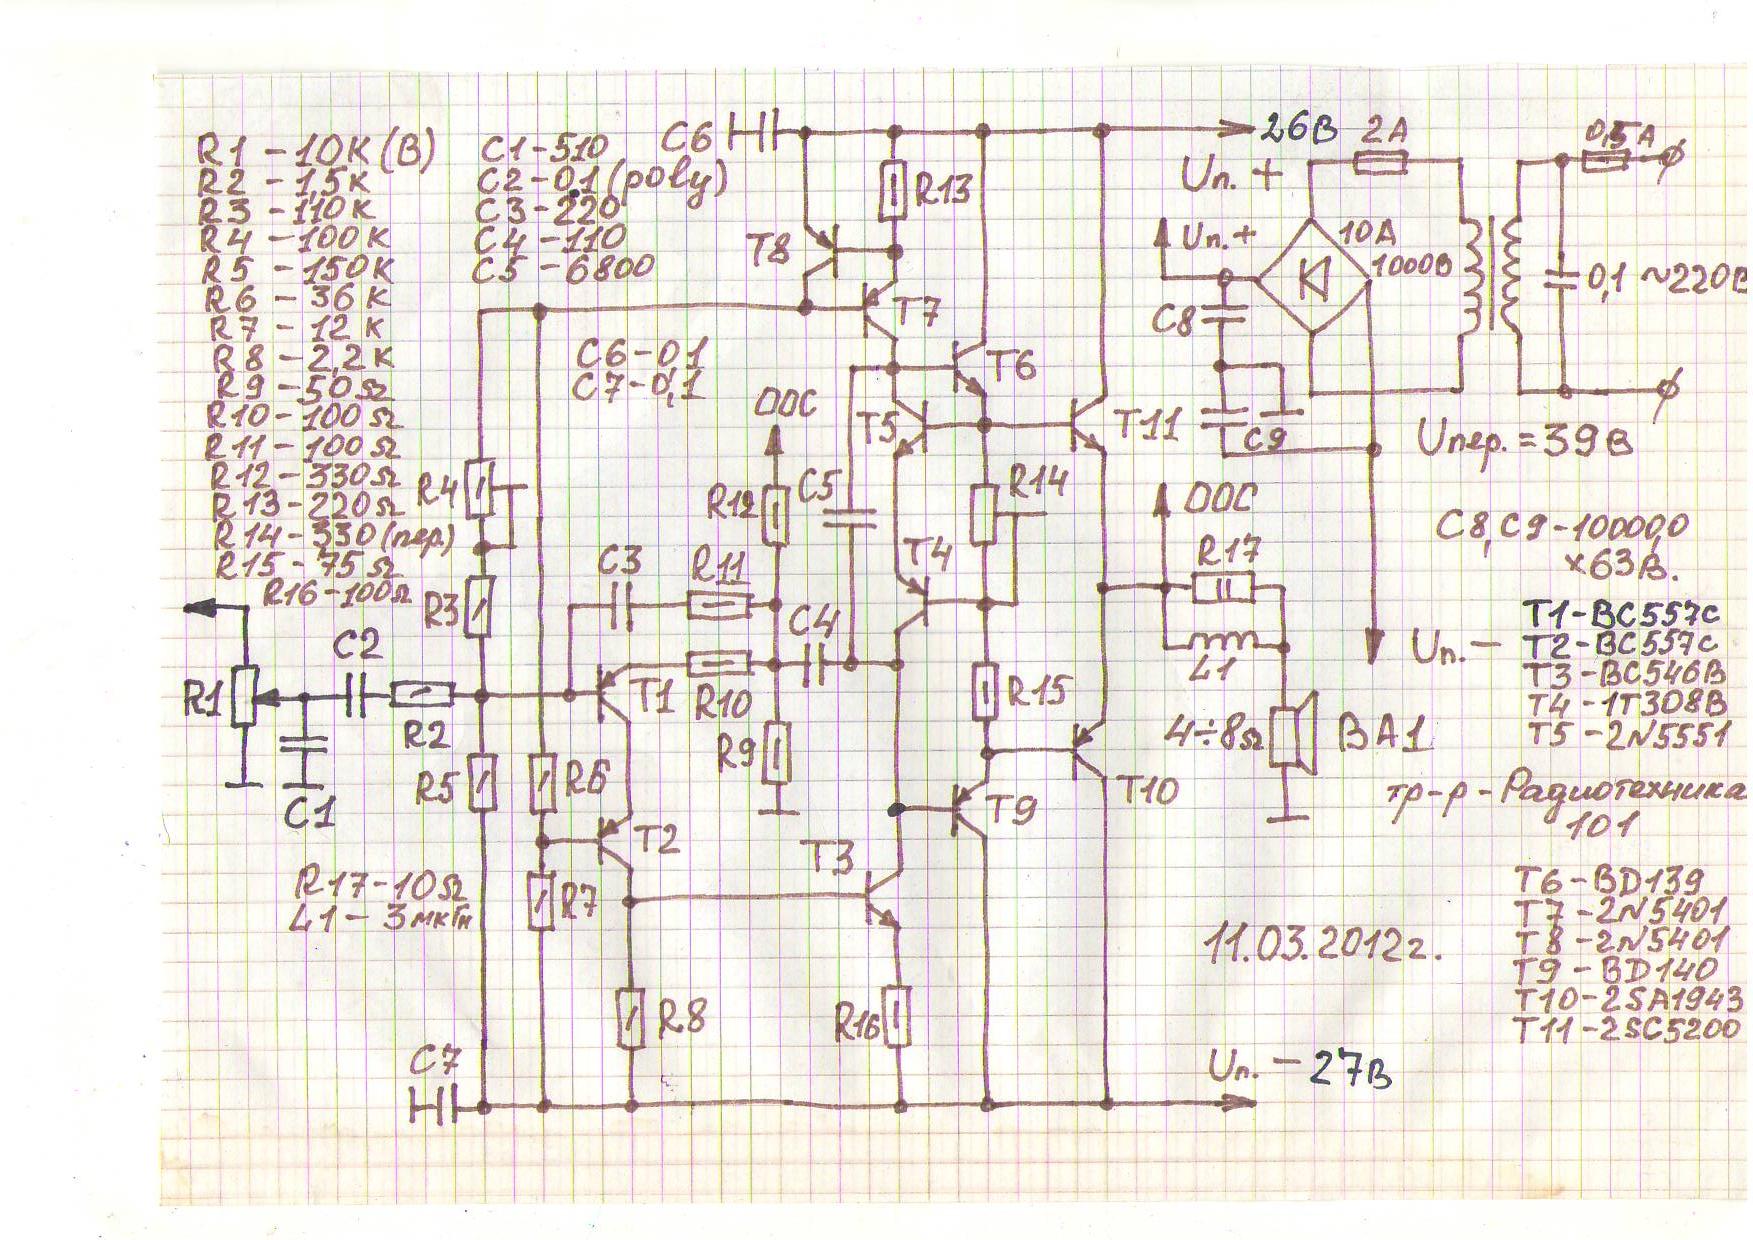 R1 - 10K (В)
R2 - 1,5K
R3 - 110K
R4 - 100K
R5 - 150K
R6 - 36K
R7 - 12K
R8 - 2,2K
R9 - 50Ω
R10 - 100Ω
R11 - 100Ω
R12 - 330Ω
R13 - 220Ω
R14 - 330 (пер.)
R15 - 75Ω
R16 - 100Ω
C1 - 510
C2 - 0,1 (poly)
C3 - 220
C4 - 110
C5 - 6800
C6 - 0,1
C7 - 0,1
R17 - 10Ω
L1 - 3мкГн
C6
R13
T8
T7
T6
T5
T11
ООС
R4
R12
C5
R14
T4
C3
R11
R3
C4
C2
R1
R2
T1
R10
R15
R9
C1
R5
R6
T2
T3
T9
T10
R7
R8
R16
C7
26В
Uп. +
2А
0,5А
Uп. +
10А
1000В
0,1
~220В
C8
C9
Uпер. = 39В
ООС
R17
L1
4÷8Ω
BA1
C8, C9 - 10000,0
×63В.
Uп. -
T1 - BC557C
T2 - BC557C
T3 - BC546B
T4 - 1T308B
T5 - 2N5551
тр-р - Радиотехника
101
T6 - BD139
T7 - 2N5401
T8 - 2N5401
T9 - BD140
T10 - 2SA1943
T11 - 2SC5200
11.03.2012г.
Uп. - 27В